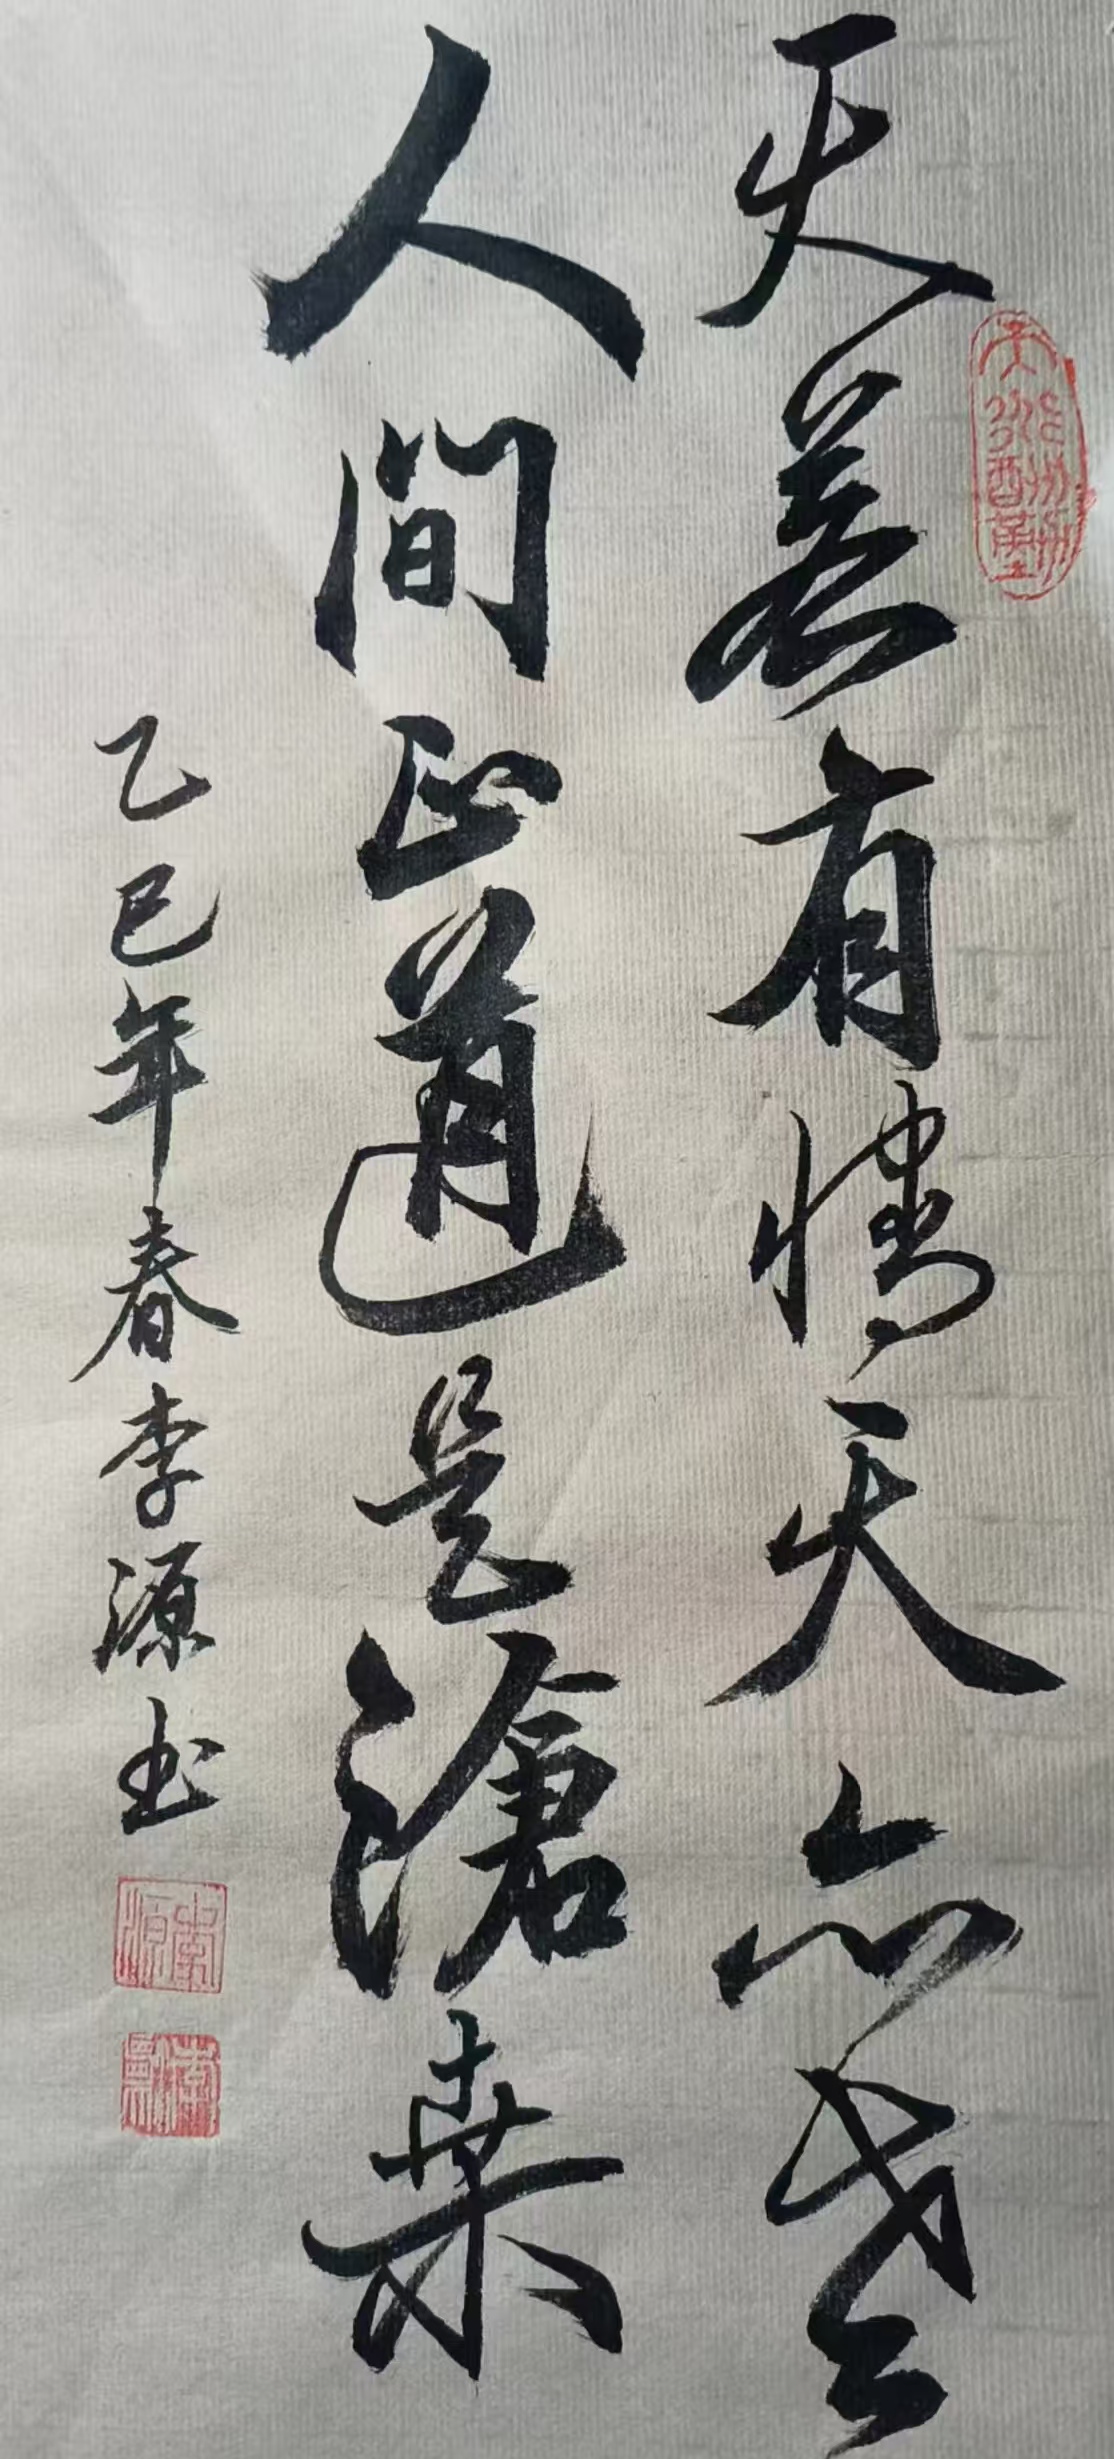 天若有情天亦老
人間正道是滄桑
乙巳年春李源书